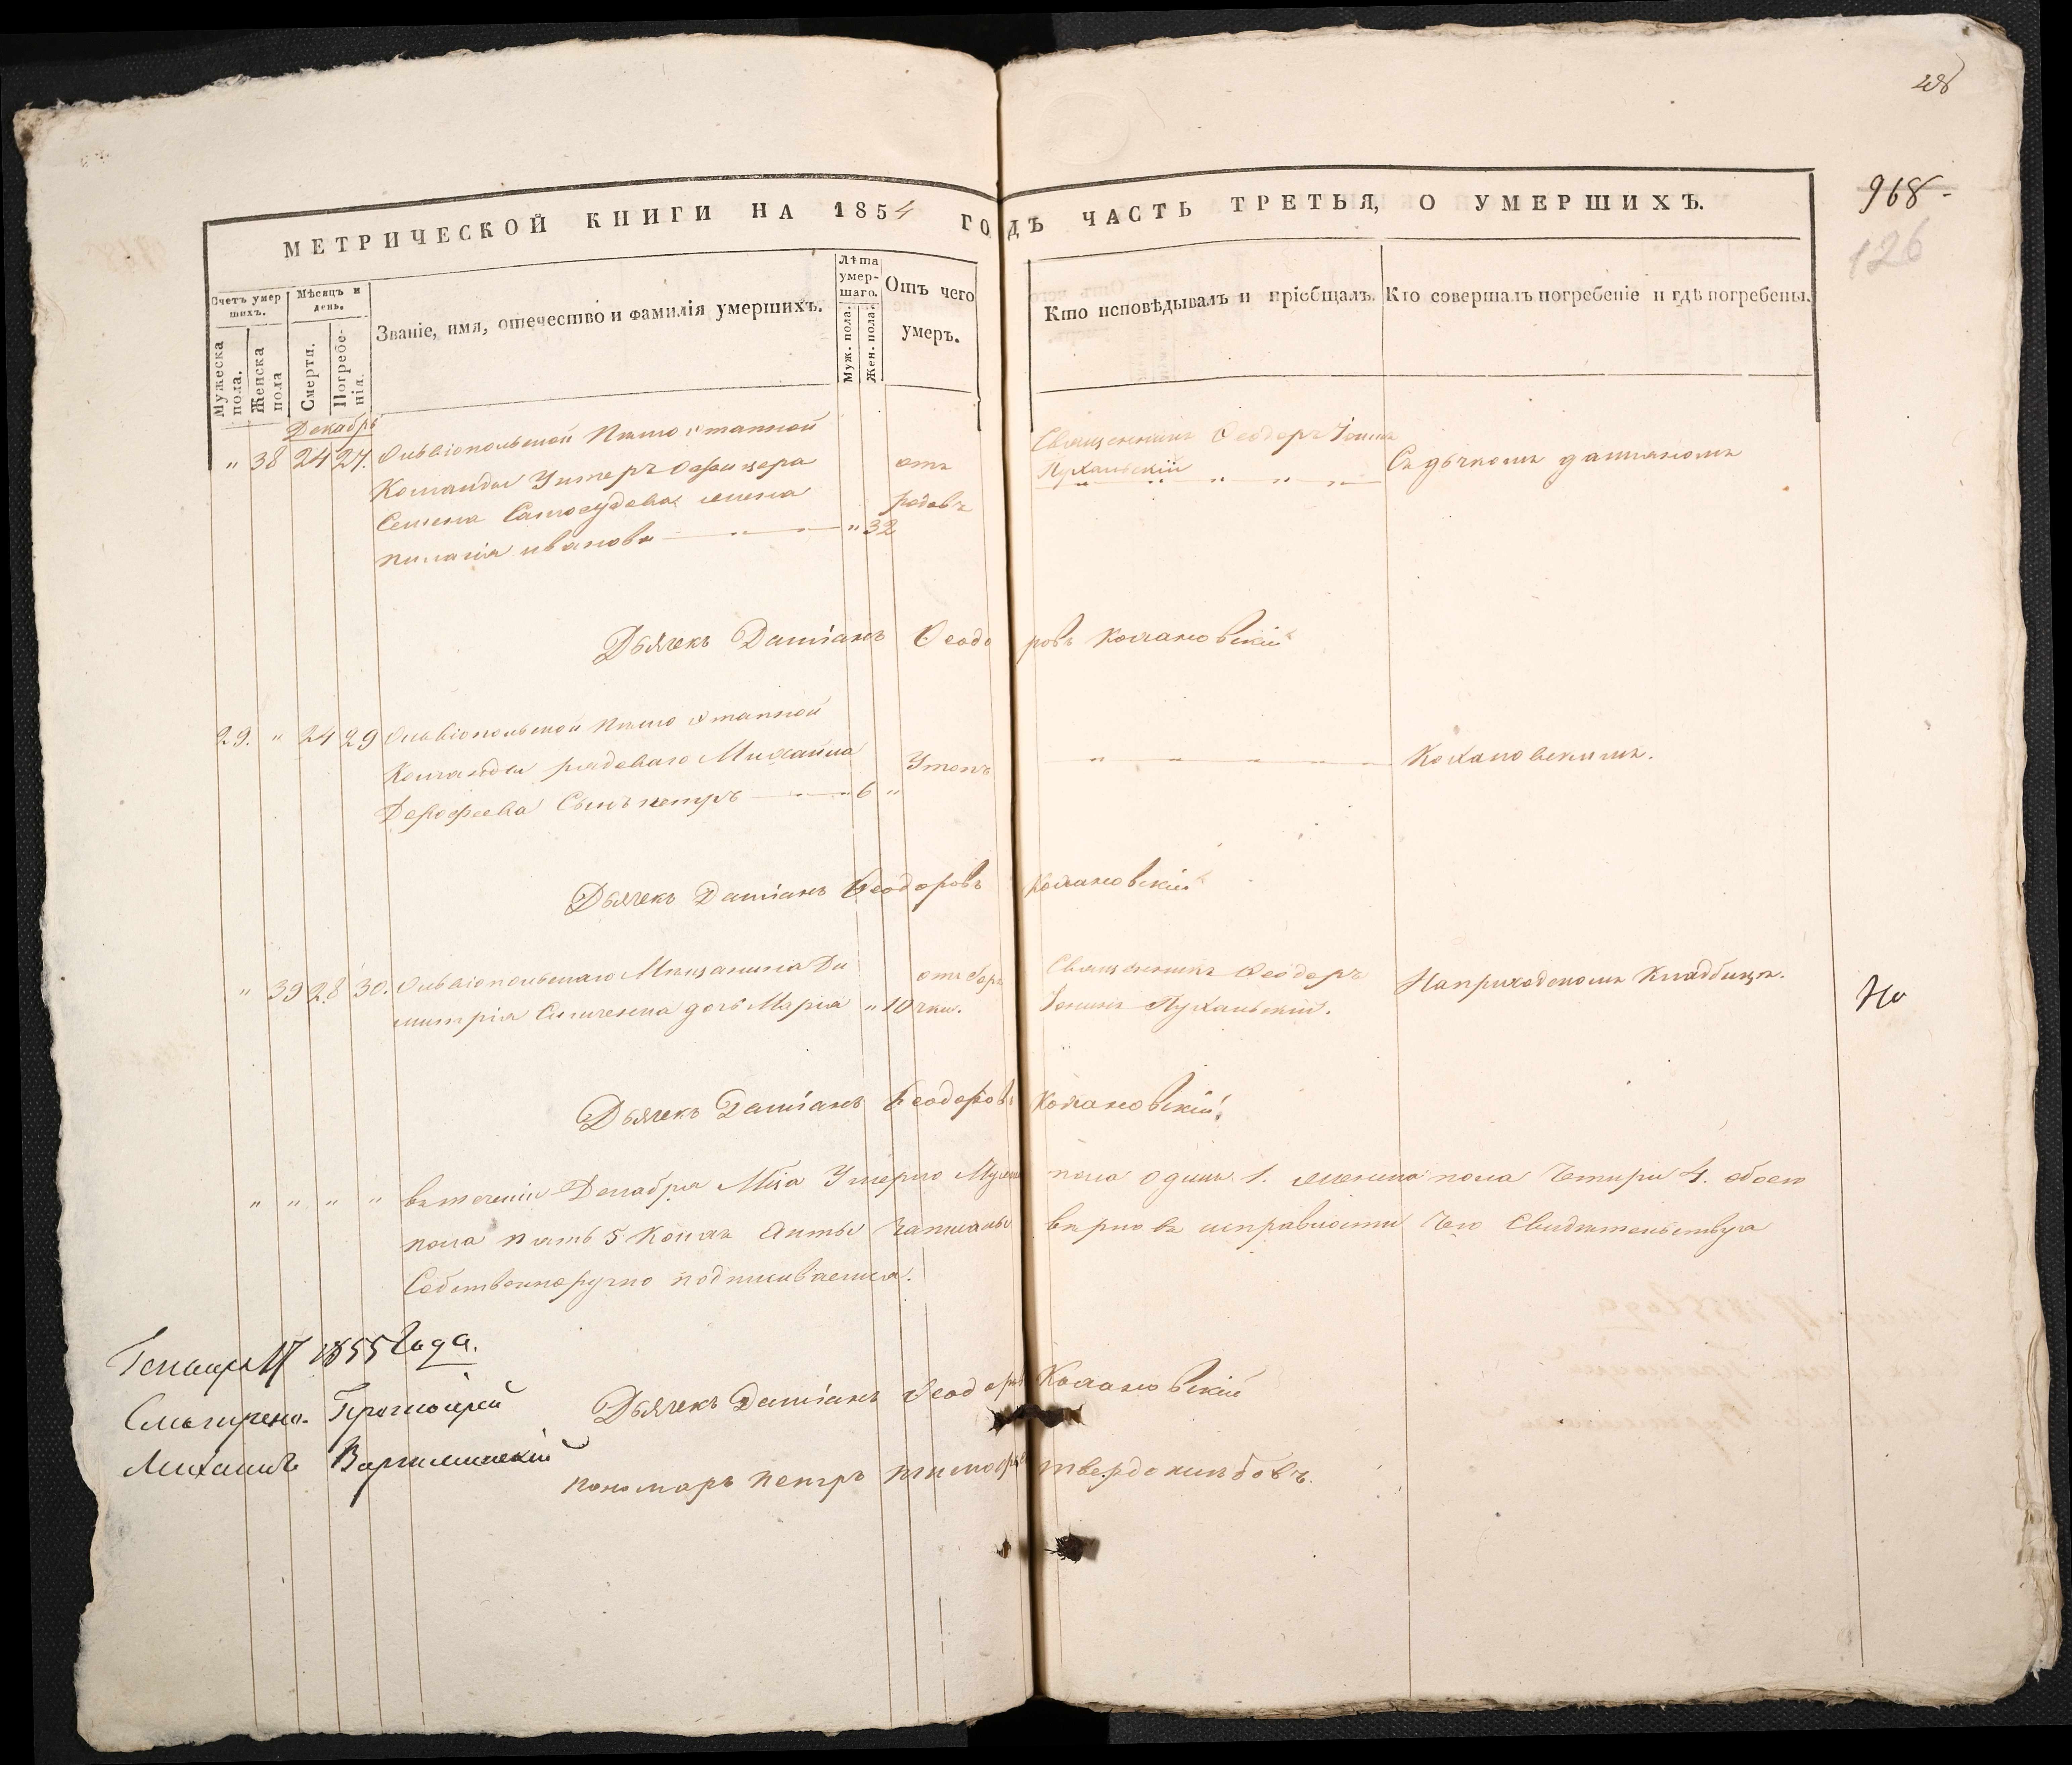 968-
126
МЕТРИЧЕСКОЙ КНИГИ НА 1854 ГОДЪ ЧАСТЬ ТРЕТЬЯ, О УМЕРШИХЪ.
Счетъ умершихъ.
Мужеска пола.
Женска пола
Мѣсяцъ и день.
Смерти.
Погребенія.
Званіе, имя, отечество и фамилія умершихъ.
Лѣта умершаго.
Муж. пола.
Жен. пола.
Отъ чего умеръ.
Кто исповѣдывалъ и пріобщалъ.
Кто совершалъ погребеніе и гдѣ погребены.
Декабрь
" 38 24 27. Ольвіопольской
Команды Унтеръ Офицера
Семена жена
пилагія иванова " 32
отъ
родовъ
Священникъ Ѳеодоръ Іоан
Лухальскій
Съ дьячкомъ даміяномъ
Дьячекъ Даміанъ Ѳеодоровъ Кохановскій
29. " 24 29 Ольвіопольской
Команды рядоваго Михаила
Дорофеева Сынъ петръ 6 "
Утопъ
Кохановскимъ.
Дьячекъ Даміанъ Ѳеодоровъ Кохановскій
" 39 28 30. Ольвіопольскаго Мѣщанина Ди
митрія дочь Марія " 10
Священникъ Ѳеодоръ
Лухальскій.
На приходскомъ Кладбищѣ.
Дьячекъ Даміанъ Ѳеодоровъ Кохановскій.
" " " " въ теченіи Декабря Мца Умерло Мужеска пола одинъ 1. женска пола Четыри 4. обоего
пола пять 5 коихъ Акты Записаны вѣрно въ исправности Чего Свидѣтельствуя
Собственноручно подписываемся.
Генваря 17 1855 Года.
Протоіерей
Михаилъ
Дьячекъ Даміанъ Ѳеодоровъ Кохановскій
пономарь петръ твердохлѣбовъ.